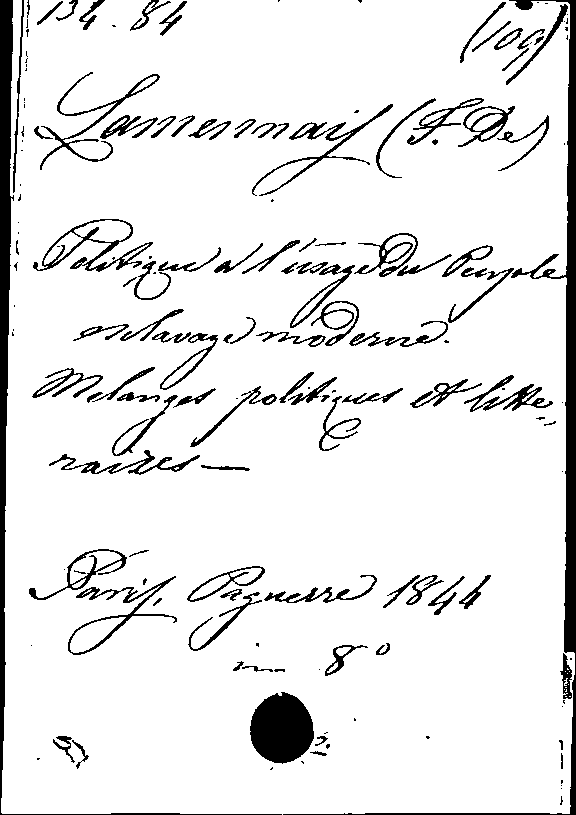 134. 84
(109)
Lamennais (F. De)
Politique à l'usage du Peuple
esclavage moderne.
Melanges politiques et litte=
raires —
Paris, Pagnerre 1844
in 8°